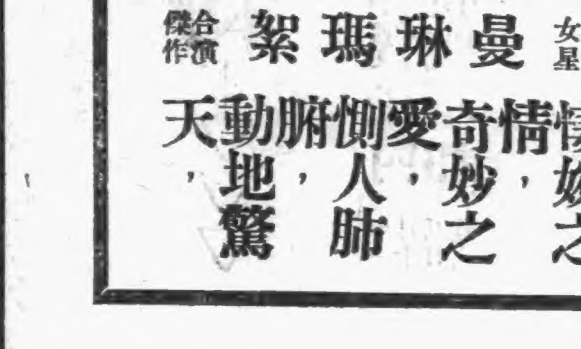 女星
曼琳瑪絮
合演
傑作
之
情，
奇妙之
愛，
惻人肺
腑，
動地驚
天，